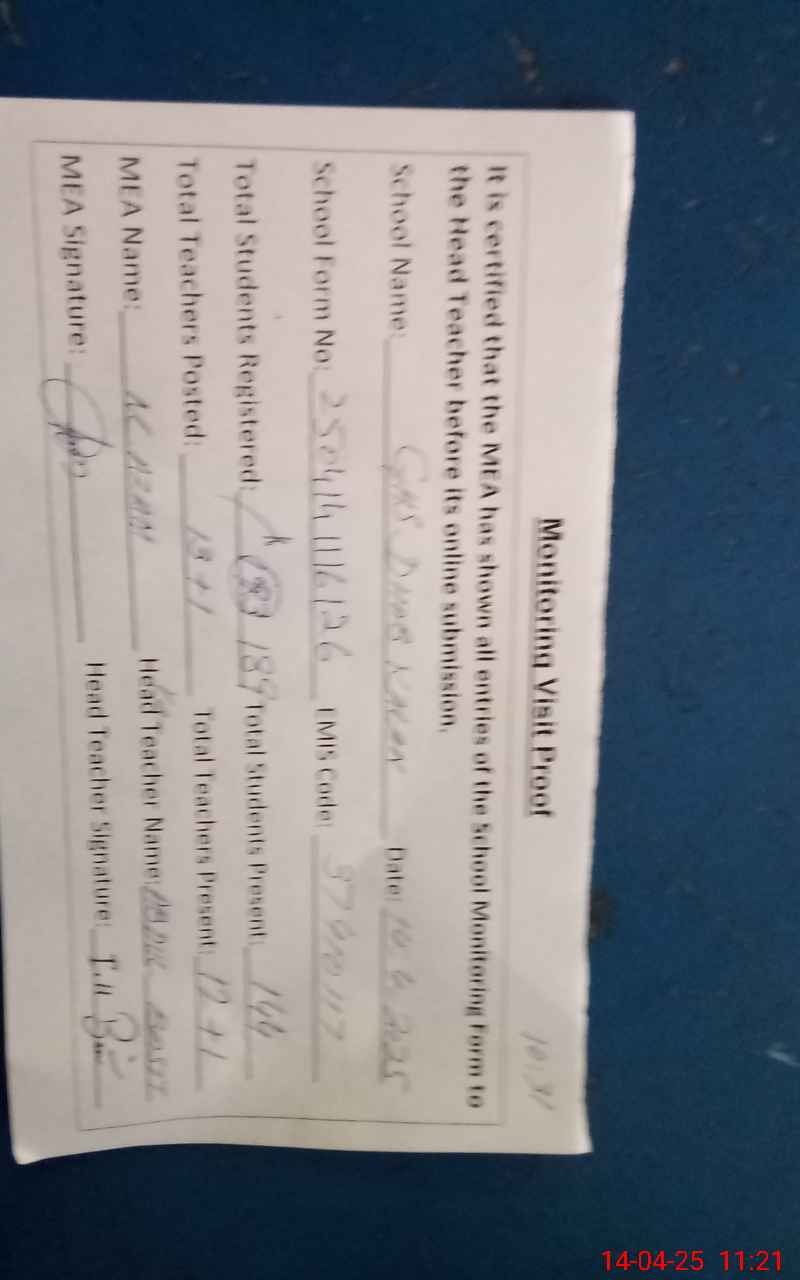 10:31
Monitoring Visit Proof
It is certified that the MEA has shown all entries of the School Monitoring Form to
the Head Teacher before its online submission.
School Name: GHS Date: 14 4 2025
School Form No: 250414 1116126 EMIS Code:
Total Students Registered: 189 Total Students Present: 144
Total Teachers Posted: 13+1 Total Teachers Present: 12+1
MEA Name: Head Teacher Name:
MEA Signature: Head Teacher Signature:
14-04-25 11:21